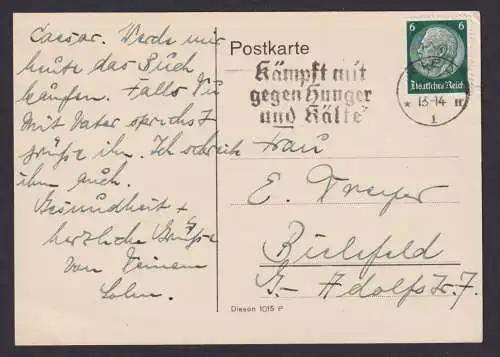 Caesar. Werde mir
heute das Buch
kaufen. Falls Du
mit Vater sprichst
grüße ihn. Ich schreib
ihm auch.
Gesundheit +
herzliche Grüße
von Deinem
Sohn.
Postkarte
Kämpft mit
gegen Hunger
und Kälte
6 6
Deutsches Reich
* 13-14 II
1
Frau
E. Treyer
Bielefeld
G.- Adolfstr. 7.
Diesen 1015 e